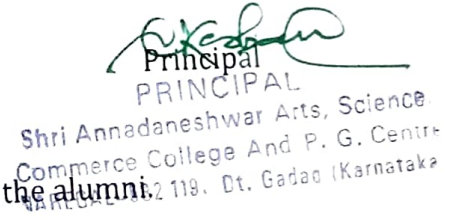 Principal
PRINCIPAL
Shri Annadaneshwar Arts, Science
Commerce College And P. G. Centre
the alumni.
119. Dt. Gadag (Karnataka